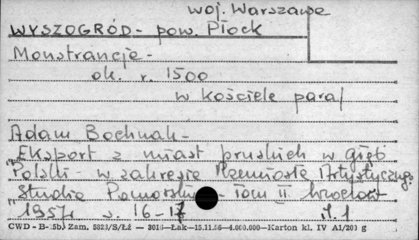 woj. Warszawa
WYSZOGRÓD - pow. Płock
Monstrancje -
ok. r. 1500
w kościele paraf
Adam Bochnak -
"Eksport z miast pruskich w głąb
Polski - w zakresie Rzemiosła Artystycznego
"Studia Pomorskie - tom II
1957 s. 16-17 il. 1
CWD-B- Zam. 5323/S/Łź - -Łak-15.11.56-4.000.000-Karton kl. IV A1/203 g